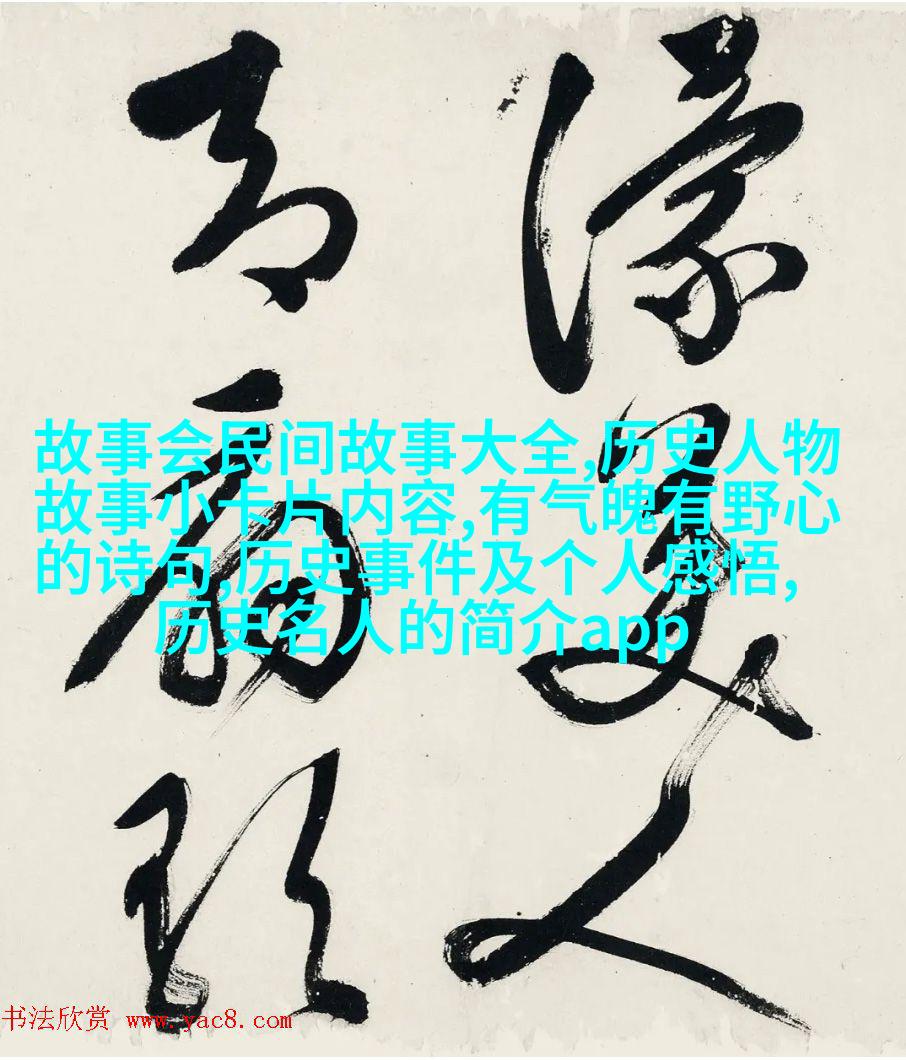 濛美人
扇
故事会民间故事大全,历史人物
故事小卡片内容,有气魄有野心
的诗句,历史事件及个人感悟,
历史名人的简介app
书法欣赏 www.yac8.com